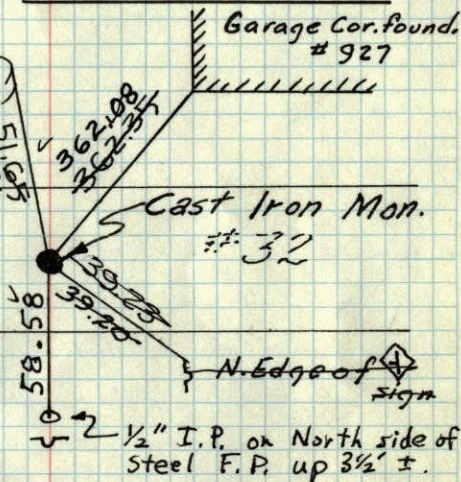 Garage Cor. found.
# 927
362.08
362.35
51.65
Cast Iron Mon.
#32
39.23
39.20
58.58
N. Edge of
sign
½" I.P. on North side of
Steel F.P. up 3½' ±.